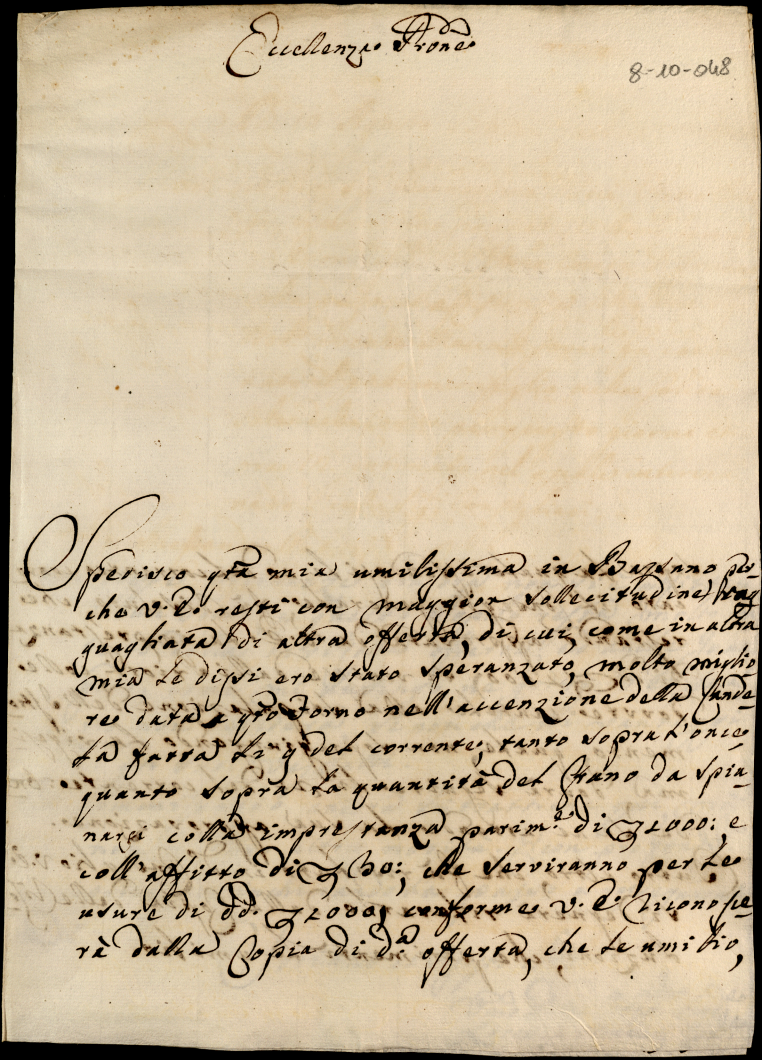 Eccellenza Prone
8-10-048
Sperisco qta mia umilissima in Bassano per-
che V. E. resti con maggior sollecitudine rag
guagliata di altra offerta, di cui, come in altra
mia le dissi ero stato speranzato, molto miglio
re data a qto Forno nell'accenzione della Cande-
la fatta li 9 del corrente, tanto sopra l'once
quanto sopra la quantità del Grano da spia-
narsi colla imprestanza parim.e di 1000: e
coll'affitto di 30:, che serviranno per le
usure di dd. 1000, conforme V. E. riconosce-
rà dalla Copia di d.a offerta, che le umilio,